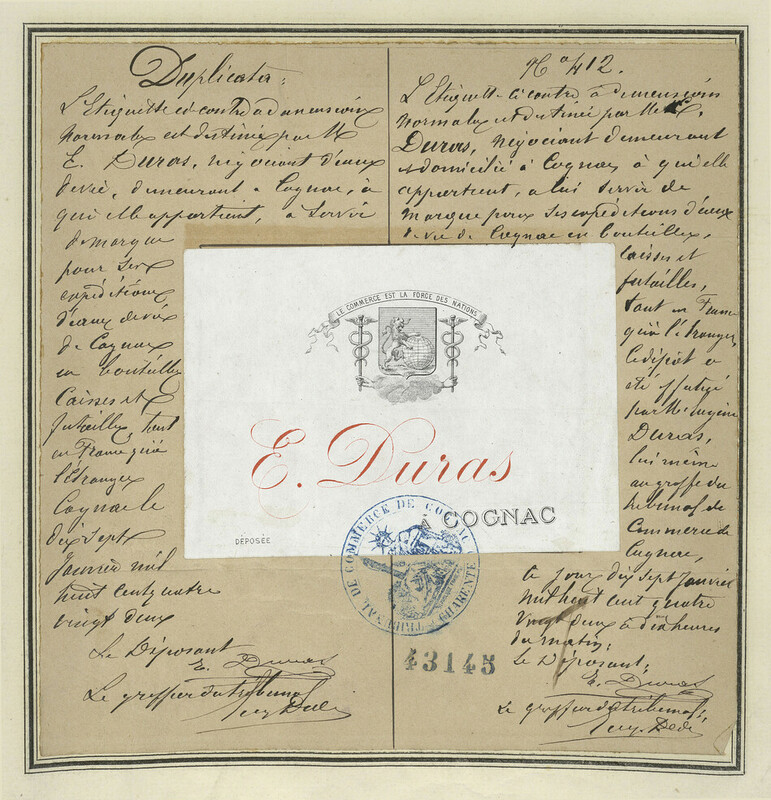 Duplicata:
L'Etiquette ci contre a dimensions
normales est destinée par M
E. Duras, négociant d'eaux
de vie, demeurant à Cognac, à
qui elle appartient, à servir
de marque
pour ses
expéditions
d'eaux de vie
de Cognac
en bouteilles
caisses et
futailles, tant
en France qu'à
l'étranger
Cognac le
dix sept
Janvier mil
huit cent quatre
vingt deux
Le Déposant
E. Duras
Le greffier du tribunal
No 412.
L'Etiquette ci contre à dimensions
normales est destinée par M. E.
Duras, négociant demeurant
et domicilié à Cognac à qui elle
appartient, a lui servir de
marque pour ses expéditions d'eaux
de vie de Cognac en bouteilles,
caisses et
futailles,
tant en France
qu'à l'étranger,
le dépôt a
été effectué
par M. Eugène
Duras,
lui même
au greffe du
tribunal de
Commerce de
Cognac,
ce jour dix sept Janvier
mil huit cent quatre
vingt deux à dix heures
du matin;
Le Déposant;
E. Duras
Le greffier du tribunal,
LE COMMERCE EST LA FORCE DES NATIONS
E. Duras
À COGNAC
DÉPOSÉE
TRIBUNAL DE COMMERCE DE COGNAC CHARENTE
43145